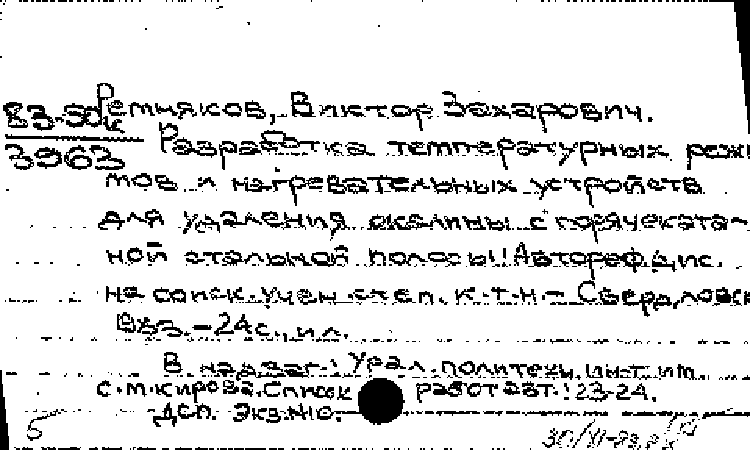 83-50к
3963
Ремняков, Виктор Захарович.
Разработка температурных режи
мов и нагревательных устройств
для удаления окалины с горячеката-
ной стальной полосы: Автореф. дис.
на соиск. учен. степ. к.т.н. - Свердловск
Б.и. - 24 с., ил.
В надзаг.: Урал. политехн. ин-т им.
С.М. Кирова. Список работ авт.: 23-24.
ДСП. Экз. №10.
5